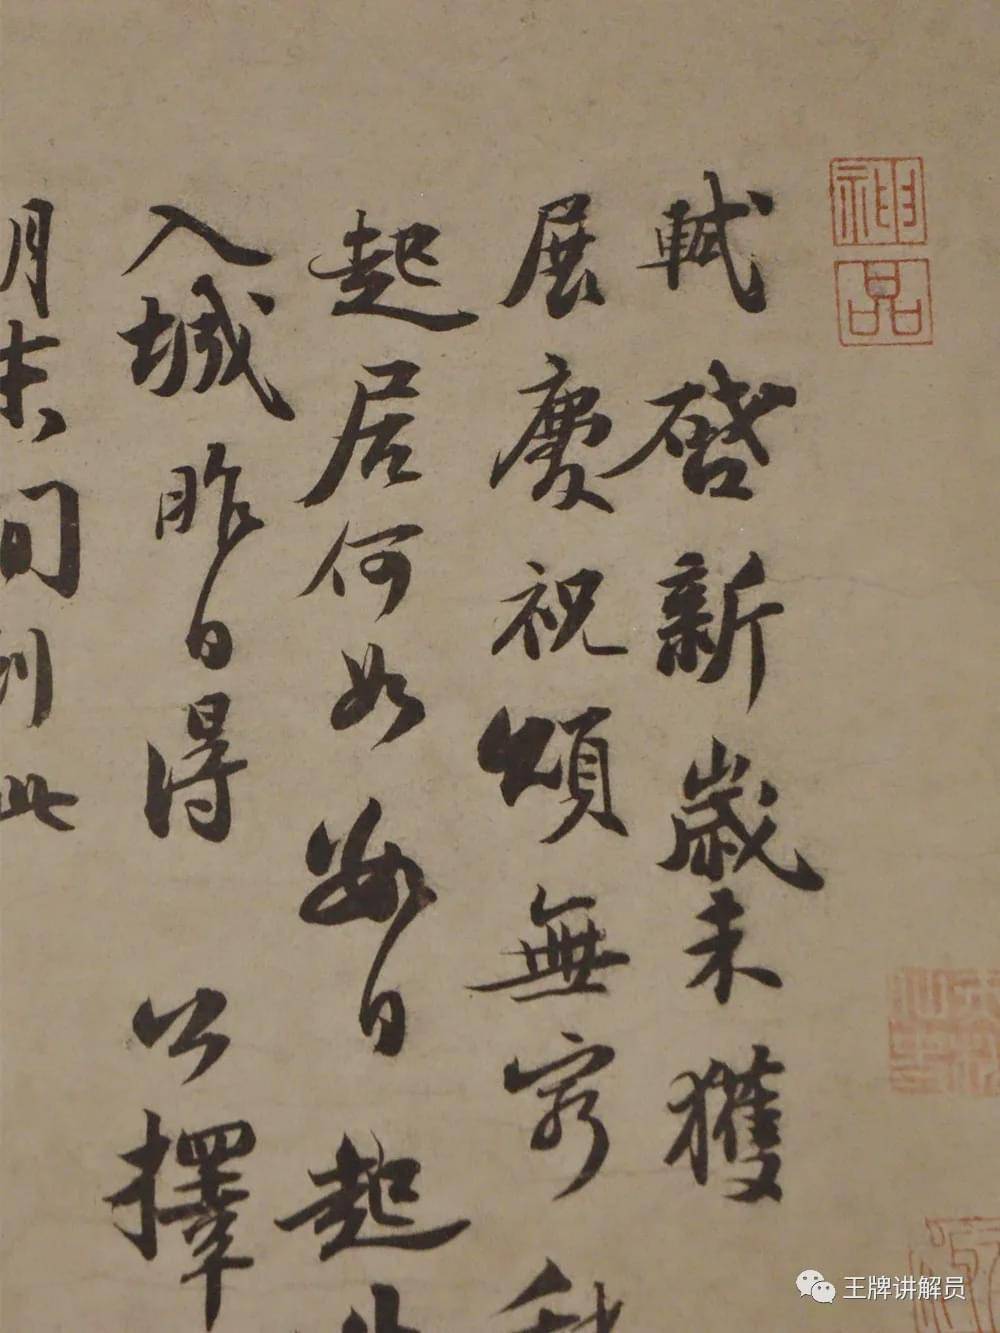 神品
軾啓新歲未獲
展慶祝頌無窮
起居何如數日起
入城昨日得 公擇
月末間到此
王牌讲解员